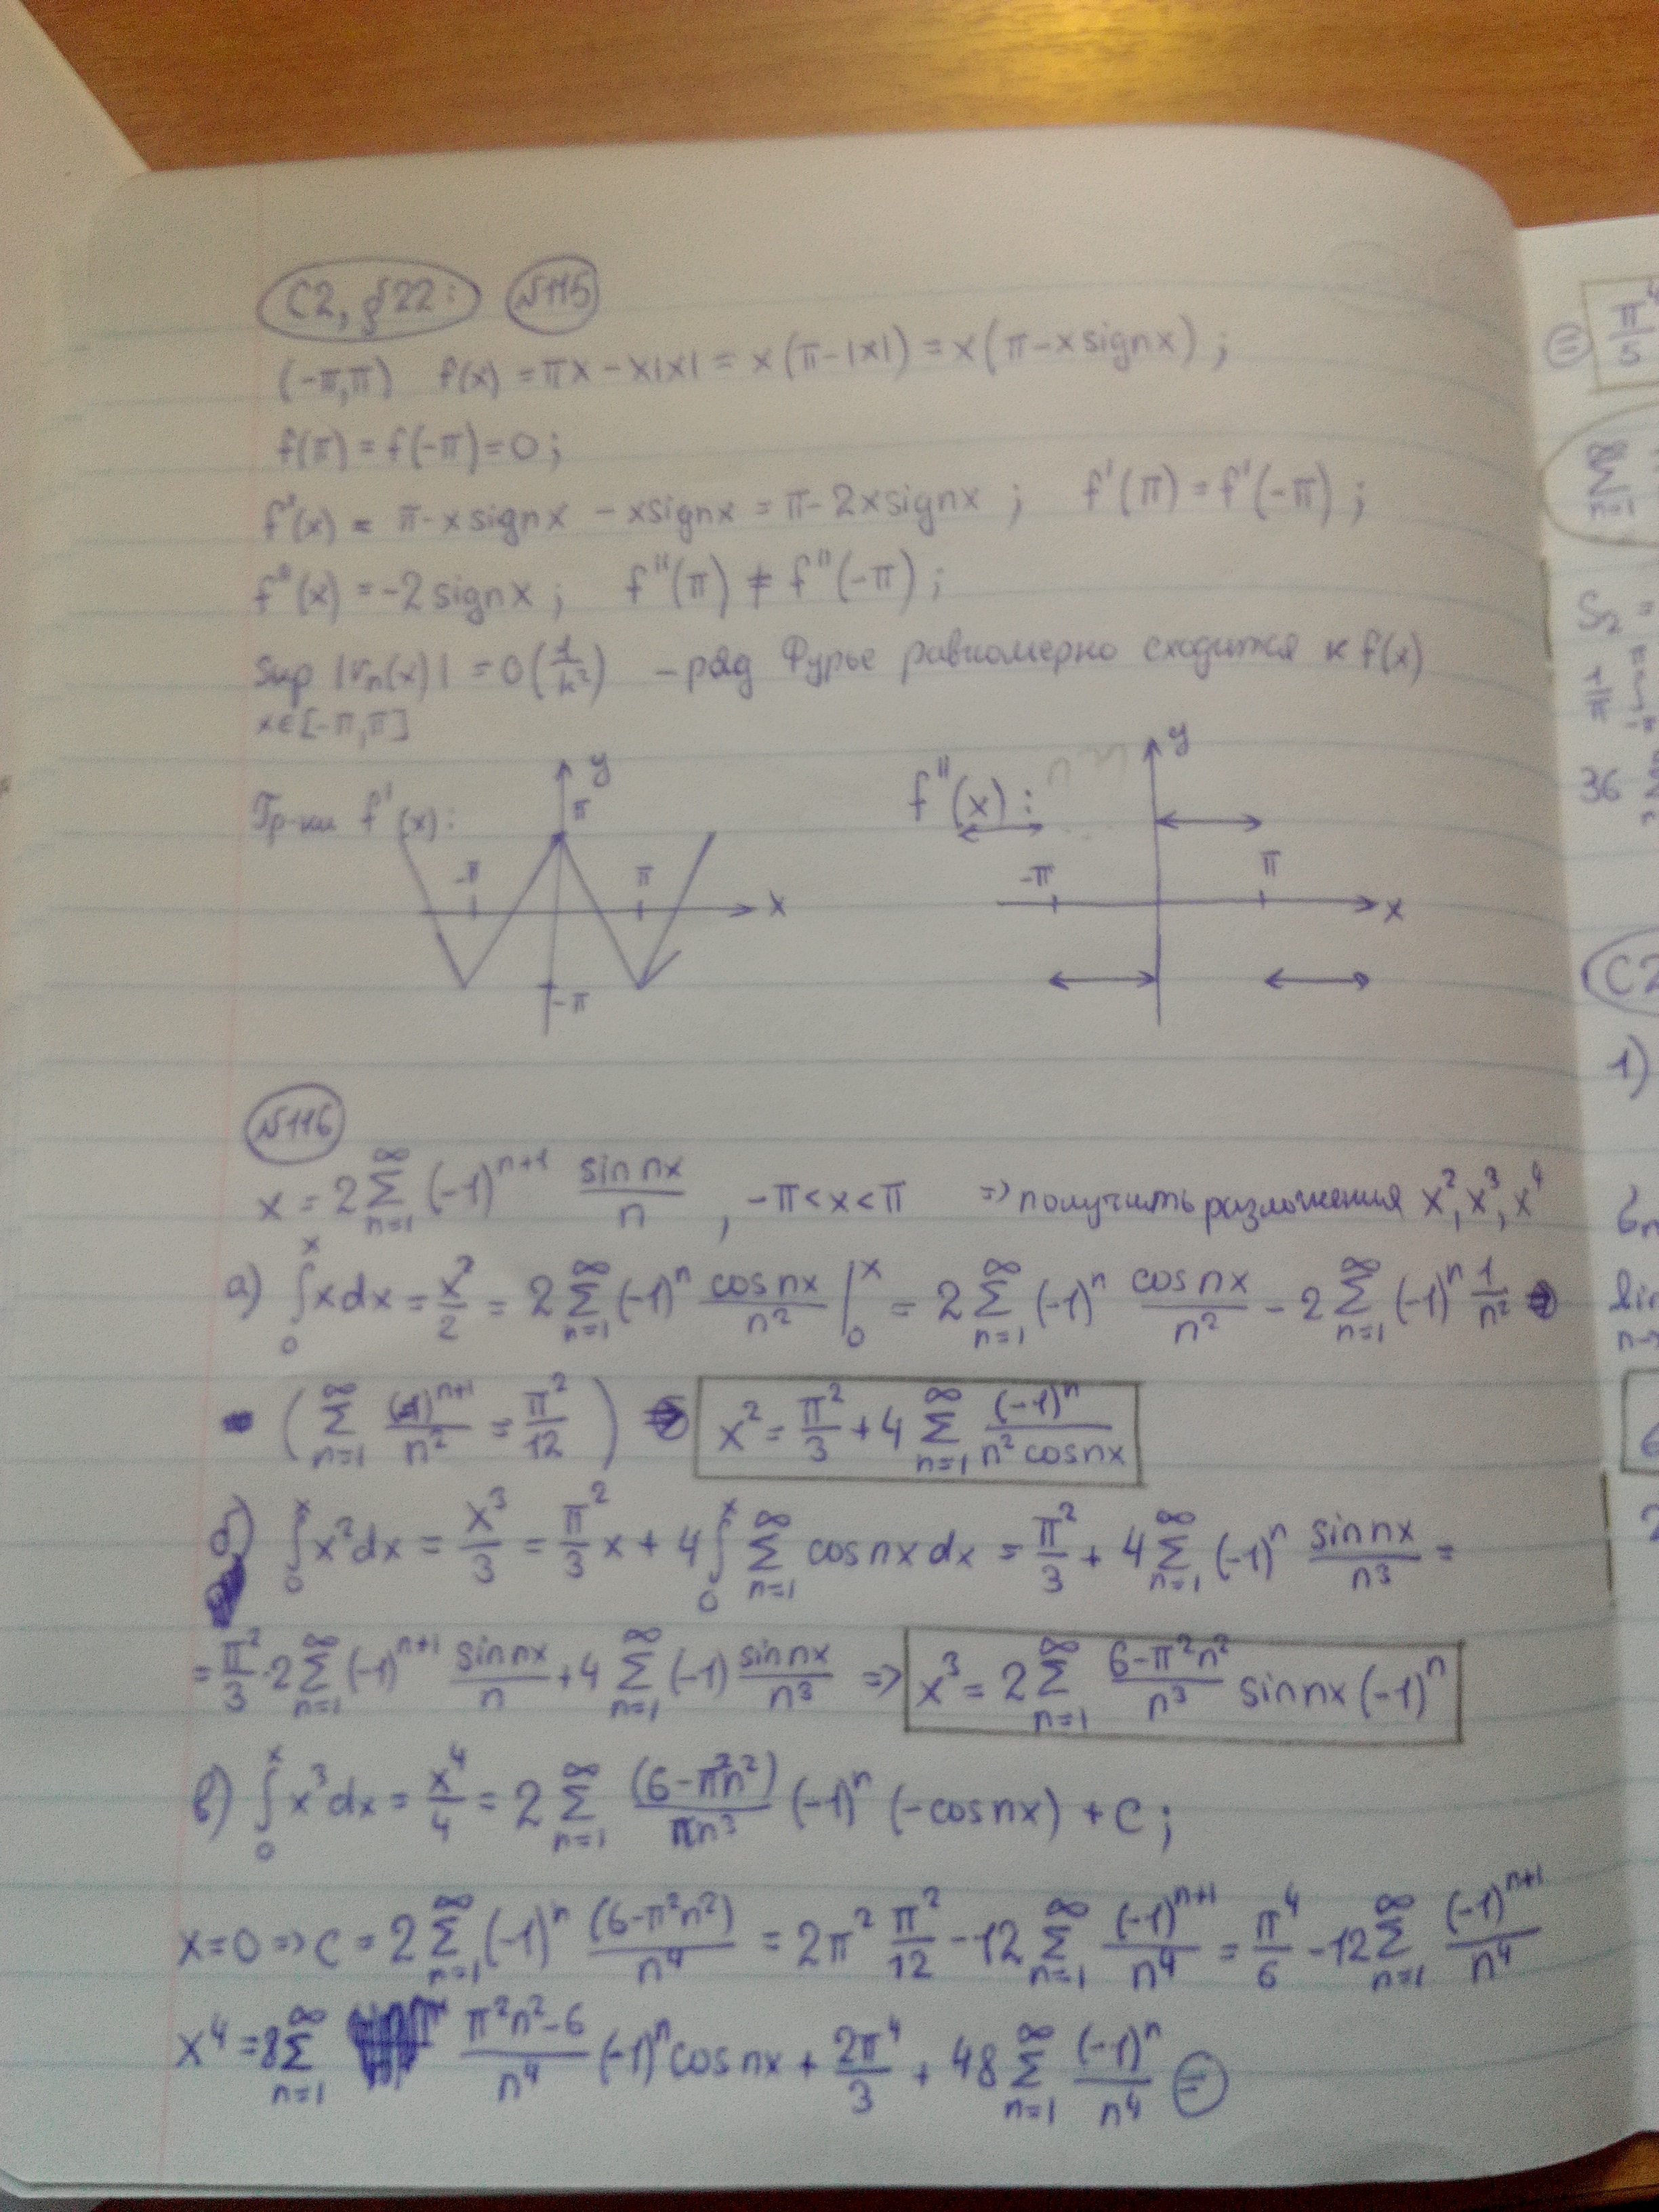 С2, §22: №115
(-π,π) f(x) = πx - x|x| = x(π-|x|) = x(π-x signx) ;
f(π) = f(-π) = 0 ;
f'(x) = π - x signx - x signx = π - 2x signx ; f'(π) = f'(-π) ;
f''(x) = -2 signx ; f''(π) ≠ f''(-π) ;
sup |rₙ(x)| = O(1/n²) - ряд Фурье равномерно сходится к f(x)
x∈[-π,π]
Гр-ки f'(x): y π -π π x -π
f''(x): y -π π x
№116
x = 2 ∑_{n=1}^{∞} (-1)^{n+1} sin nx / n , -π<x<π => получить разложения x², x³, x⁴
а) ∫₀ˣ x dx = x²/2 = 2 ∑_{n=1}^{∞} (-1)ⁿ cos nx / n² |₀ˣ = 2 ∑_{n=1}^{∞} (-1)ⁿ cos nx / n² - 2 ∑_{n=1}^{∞} (-1)ⁿ 1/n²
( ∑_{n=1}^{∞} (-1)^{n+1} / n² = π²/12 ) x² = π²/3 + 4 ∑_{n=1}^{∞} (-1)ⁿ / (n² cos nx)
б) ∫₀ˣ x² dx = x³/3 = π²/3 x + 4 ∫₀ˣ ∑_{n=1}^{∞} cos nx dx = π²/3 + 4 ∑_{n=1}^{∞} (-1)ⁿ sin nx / n³ =
= π²/3 · 2 ∑_{n=1}^{∞} (-1)^{n+1} sin nx / n + 4 ∑_{n=1}^{∞} (-1) sin nx / n³ => x³ = 2 ∑_{n=1}^{∞} (6-π²n²)/n³ sin nx (-1)ⁿ
в) ∫₀ˣ x³ dx = x⁴/4 = 2 ∑_{n=1}^{∞} (6-π²n²)/(n n³) (-1)ⁿ (-cos nx) + C ;
x=0 => C = 2 ∑_{n=1}^{∞} (-1)ⁿ (6-π²n²)/n⁴ = 2π² π²/12 - 12 ∑_{n=1}^{∞} (-1)^{n+1}/n⁴ = π⁴/6 - 12 ∑_{n=1}^{∞} (-1)^{n+1}/n⁴
x⁴ = 8 ∑_{n=1}^{∞} (π²n²-6)/n⁴ (-1)ⁿ cos nx + 2π⁴/3 + 48 ∑_{n=1}^{∞} (-1)ⁿ/n⁴ =
= π⁴/5
∑_{n=1}^{∞}
S₂ =
1/π
36
С2
1)
lim